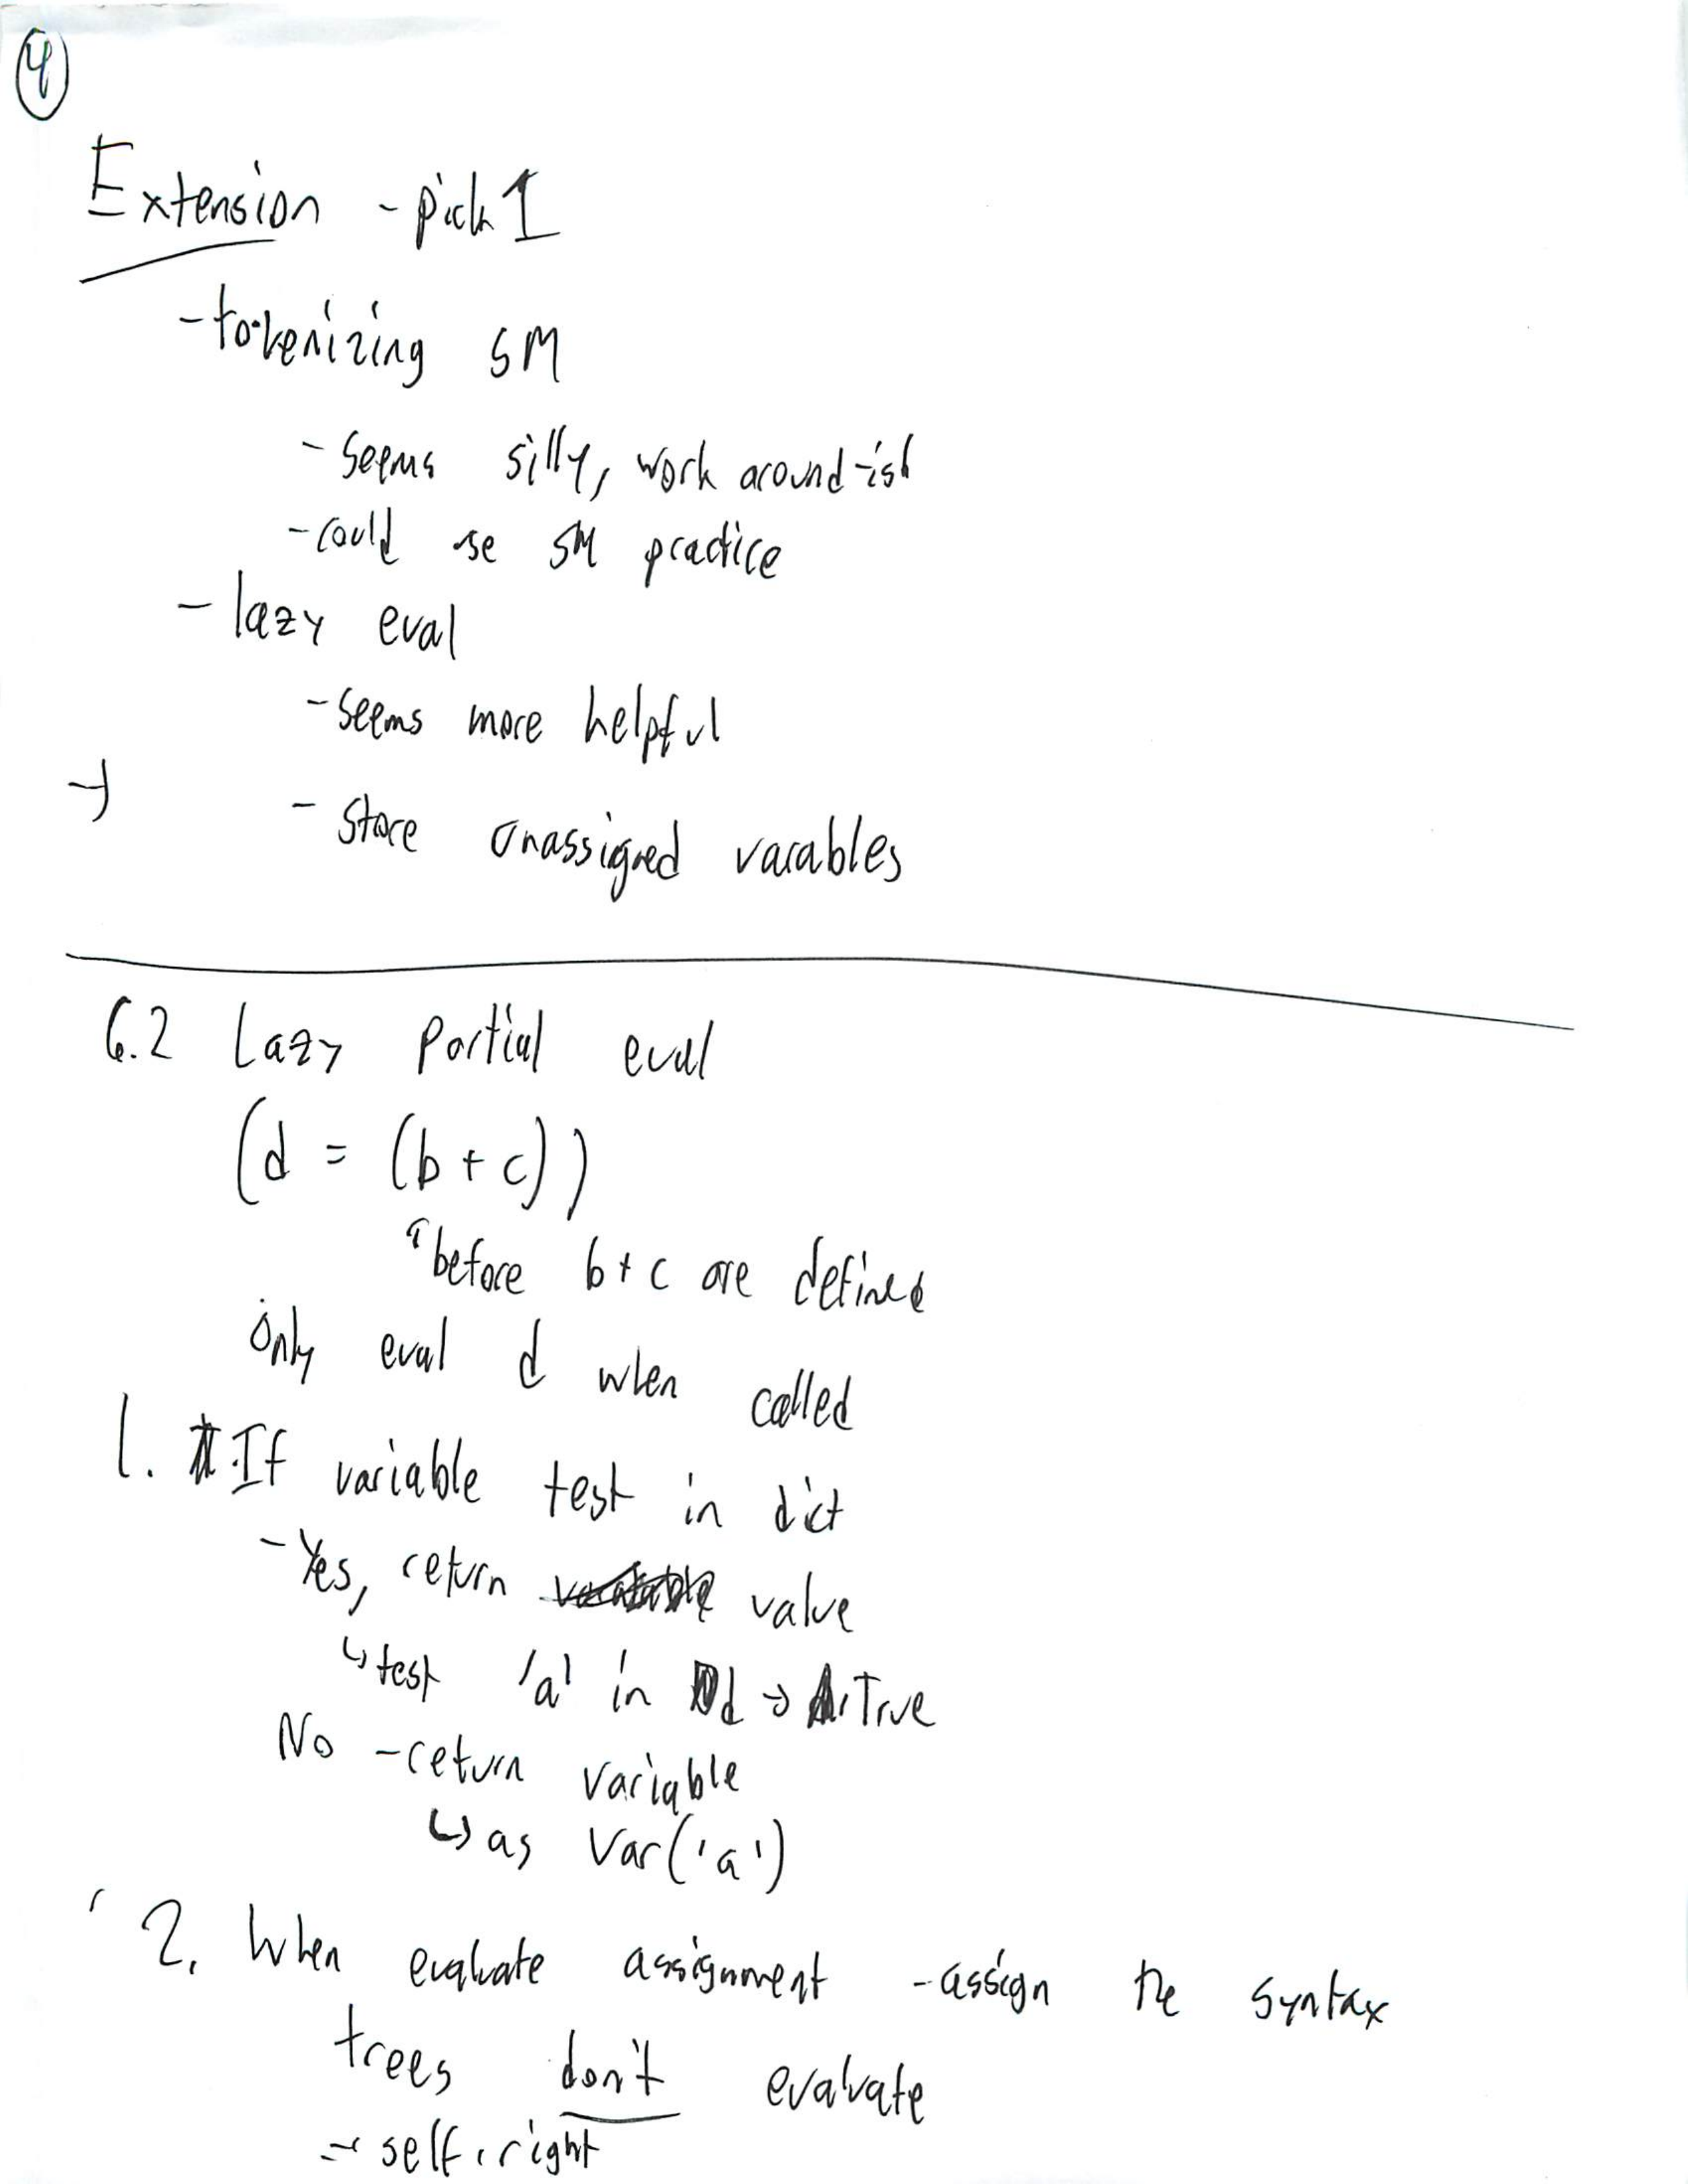 4
Extension - pick 1
- tokenizing SM
- seems silly, work around-ish
- could use SM practice
- lazy eval
- seems more helpful
- store unassigned varables
6.2 Lazy Partial eval
(d = (b + c))
before b + c are defined
only eval d when called
1. If variable test in dict
- Yes, return value
↳ test 'a' in d → True
No - return variable
↳ as Var('a')
2. When evaluate assignment - assign the syntax
trees don't evaluate
= self.right